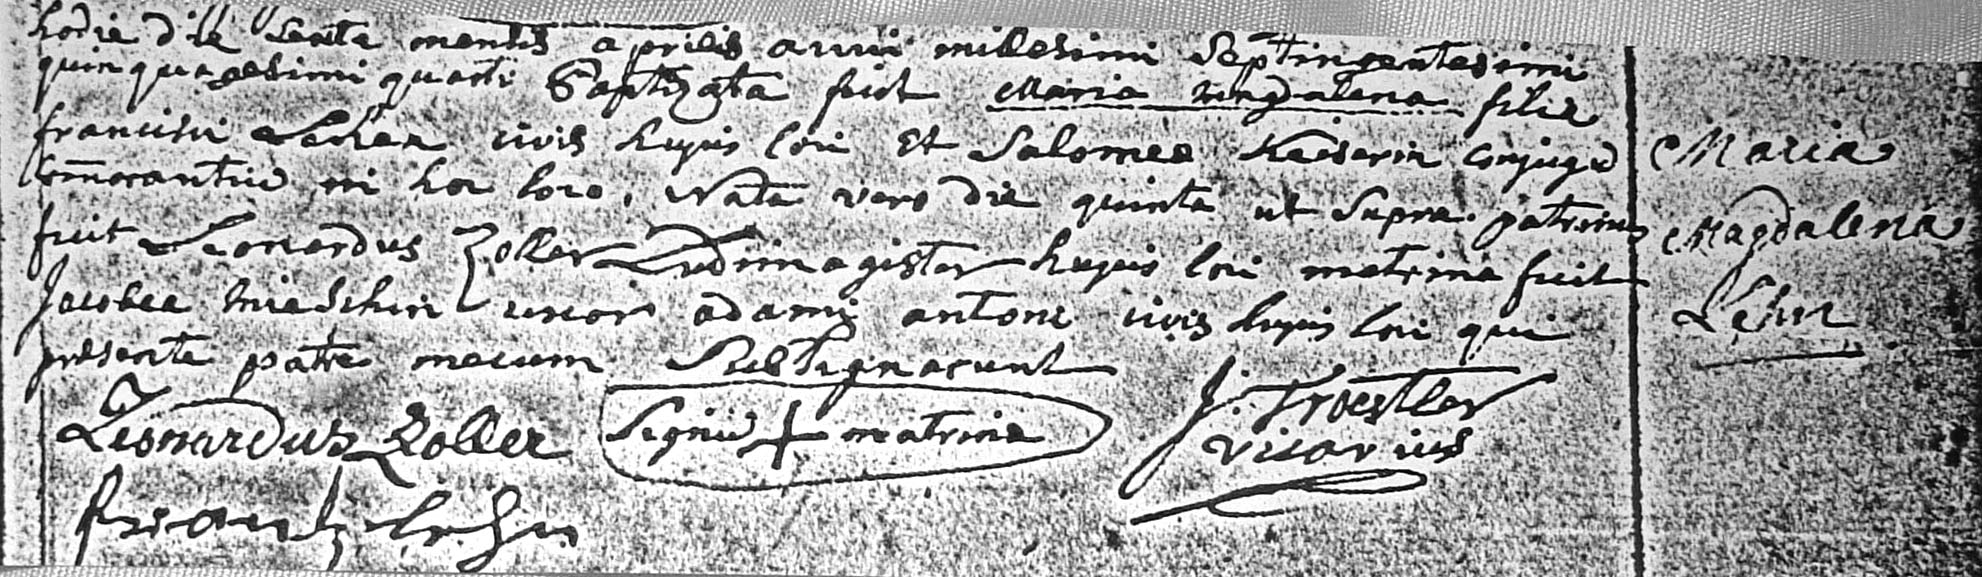 hodie die sexta mensis aprilis anni millesimi septingentesimi
quinquagesimi quarti baptizata fuit Maria magdalena filia
francisci Lehen civis hujus loci et Salomee Keiserin conjugū
com̄orantiū in hoc loco, Nata vero die quinta ut supra. patrinus
fuit Leonardus Zoller Ludimagister hujus loci matrina fuit
Jacobea uxor adami antoni civis hujus loci qui
presente patre mecum subsignarunt
Maria
Magdalena
Lehn
Leonardus Zoller
Signū + matrine
J. Troestler
vicarius
frantz Lehn